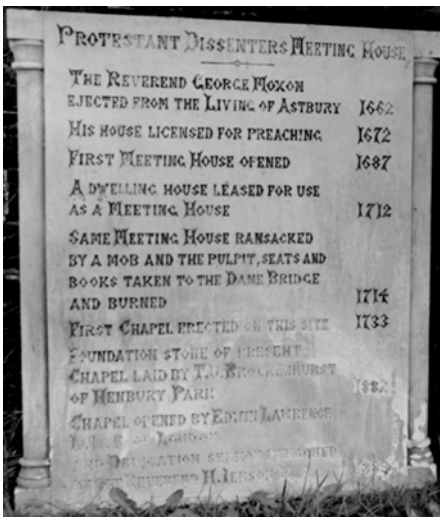 PROTESTANT DISSENTERS MEETING HOUSE
THE REVEREND GEORGE MOXON
EJECTED FROM THE LIVING OF ASTBURY 1662
HIS HOUSE LICENSED FOR PREACHING 1672
FIRST MEETING HOUSE OPENED 1687
A DWELLING HOUSE LEASED FOR USE
AS A MEETING HOUSE 1712
SAME MEETING HOUSE RANSACKED
BY A MOB AND THE PULPIT, SEATS AND
BOOKS TAKEN TO THE DANE BRIDGE
AND BURNED 1714
FIRST CHAPEL ERECTED ON THIS SITE 1733
FOUNDATION STONE OF PRESENT
CHAPEL LAID BY BROCKLEHURST
OF HENBURY PARK 1882
CHAPEL OPENED BY EDWIN LAWRENCE
OF LONDON
AND DEDICATION SERMON PREACHED
REVEREND H. IERSON